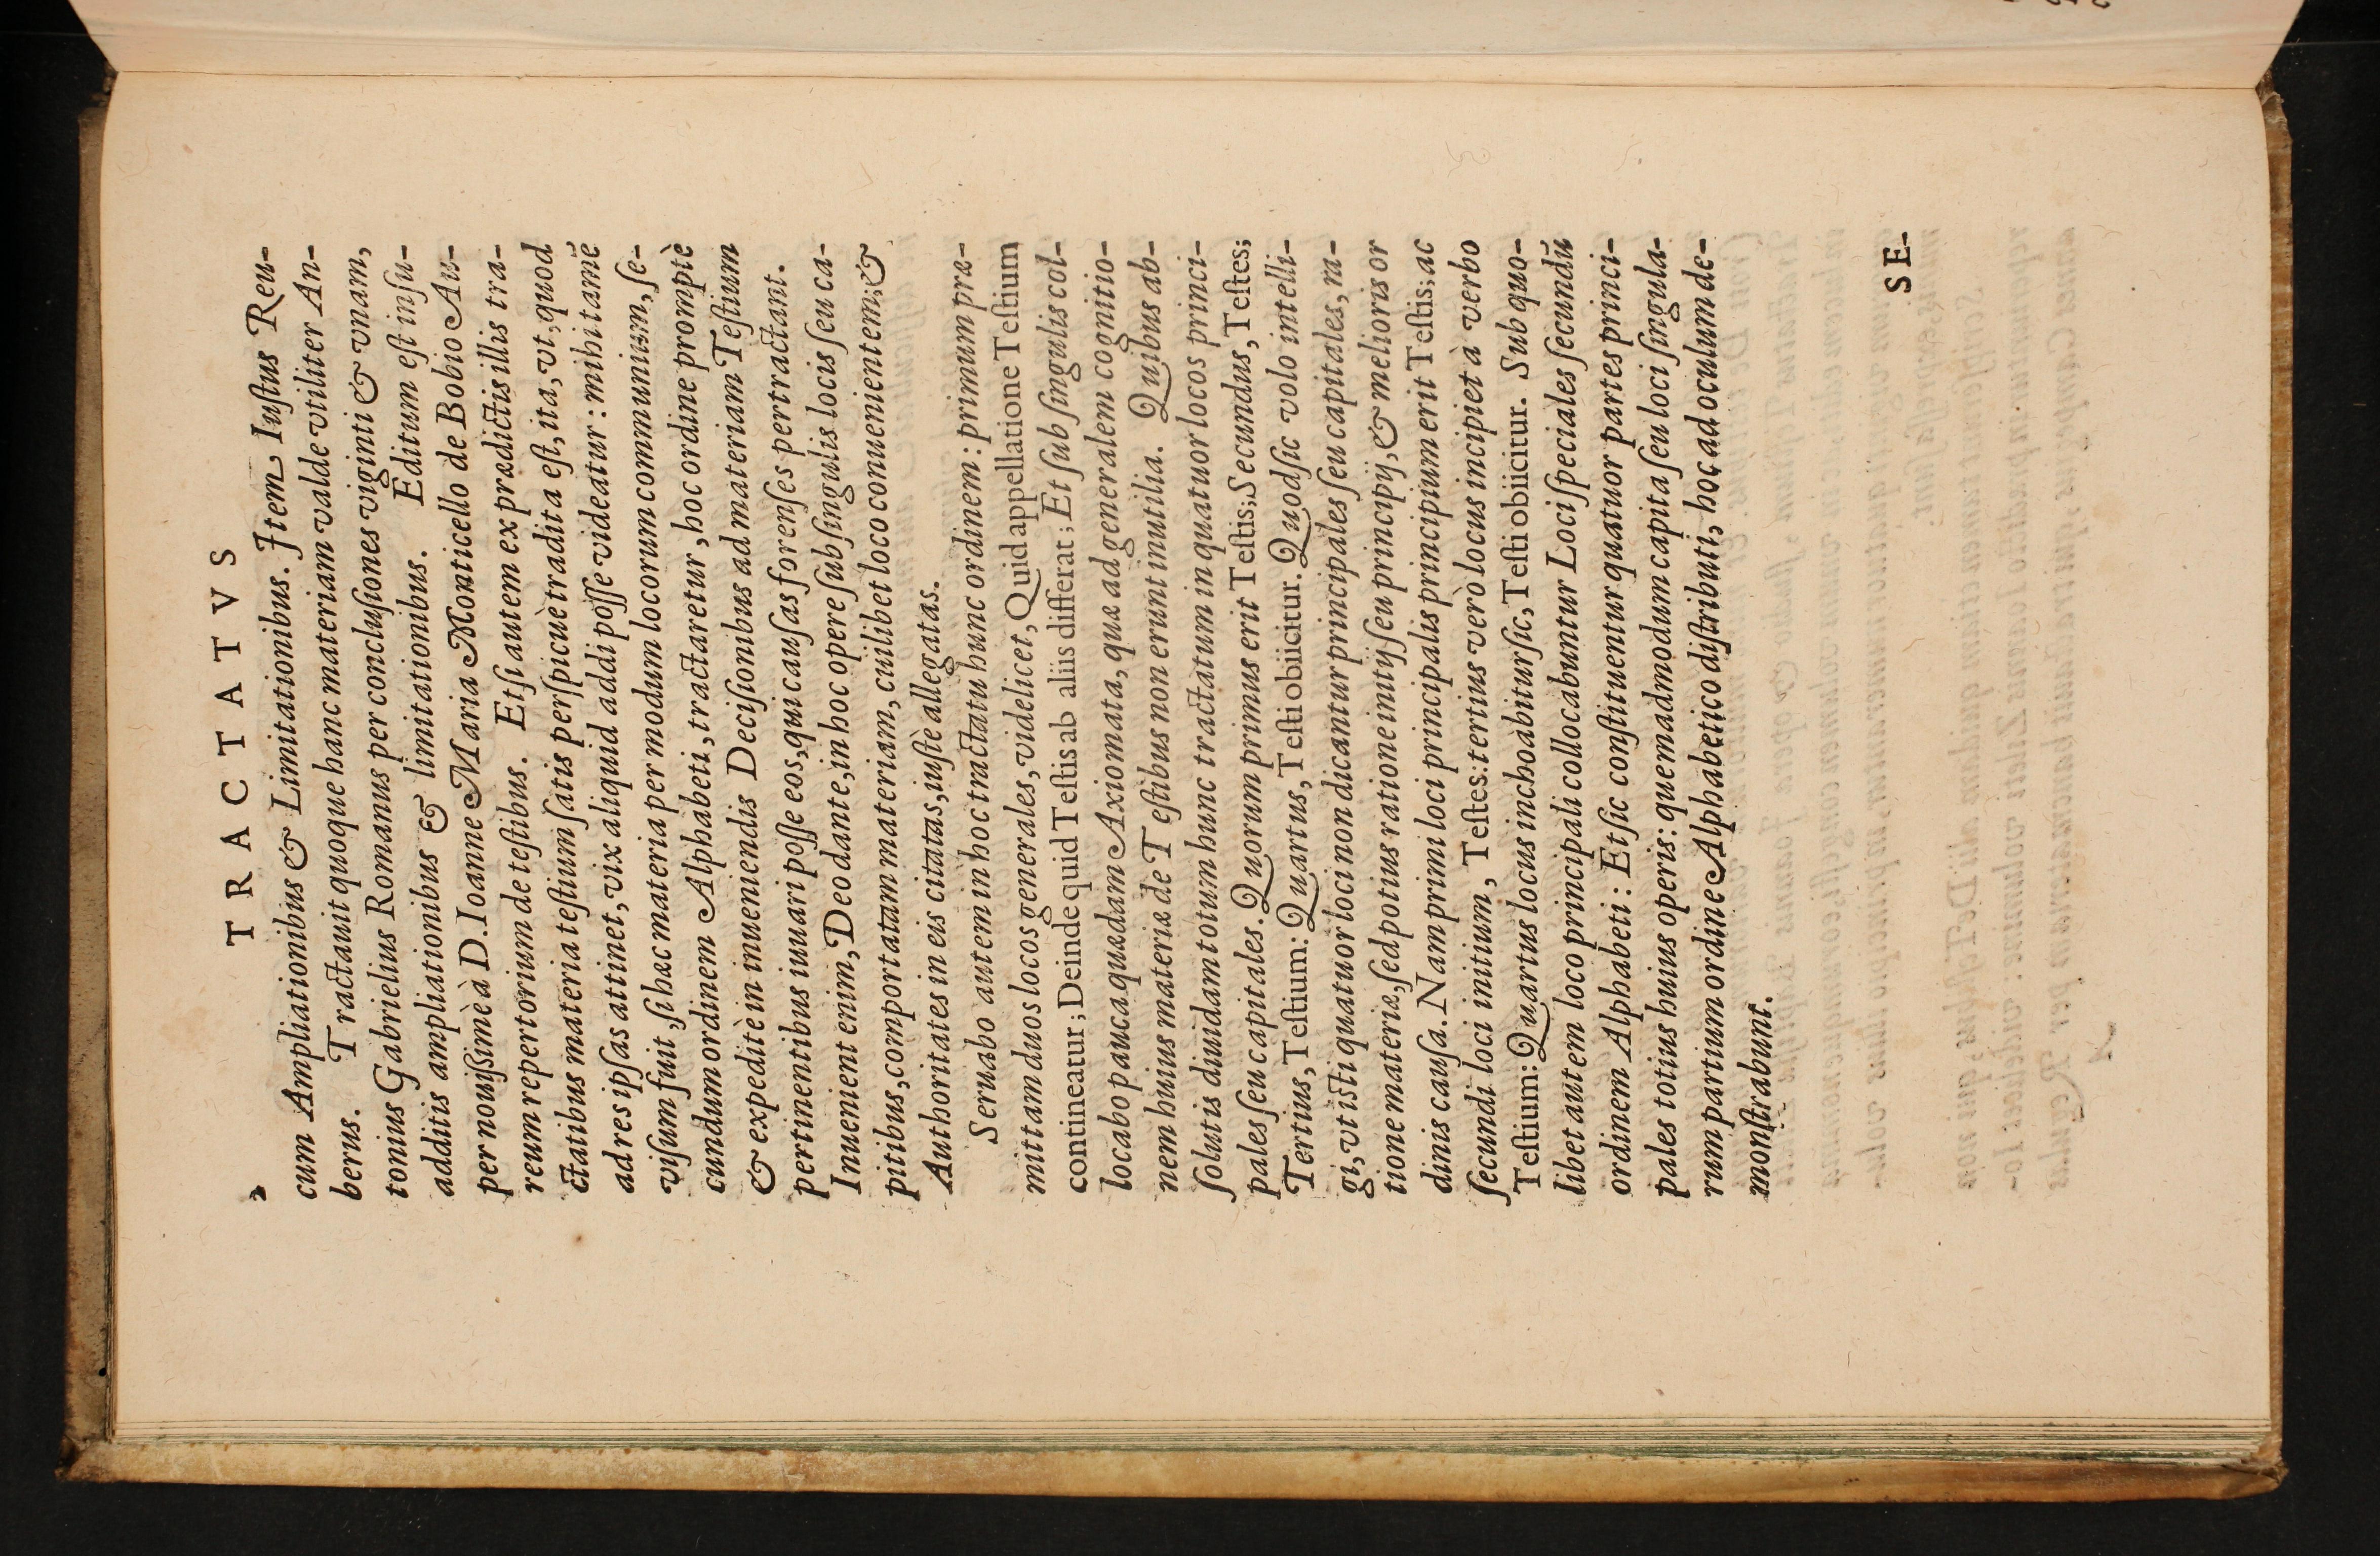 2 TRACTATVS
cum Ampliationibus & Limitationibus. Item, Iuſtus Reu-
berus. Tractauit quoque hanc materiam valde vtiliter An-
tonius Gabrielius Romanus per concluſiones viginti & vnam,
additis ampliationibus & limitationibus. Editum eſt inſu-
per nouiſsimè à D. Ioanne Maria Monticello de Bobio Au-
reum repertorium de teſtibus. Etſi autem ex prædictis illis tra-
ctatibus materia teſtium ſatis perſpicuè tradita eſt, ita, vt, quod
ad res ipſas attinet, vix aliquid addi poſſe videatur: mihi tamē
viſum fuit, ſi hæc materia per modum locorum communium, ſe-
cundum ordinem Alphabeti, tractaretur, hoc ordine promptè
& expeditè in inueniendis Deciſionibus ad materiam Teſtium
pertinentibus iuuari poſſe eos, qui cauſas forenſes pertractant.
Inuenient enim, Deo dante, in hoc opere ſub ſingulis locis ſeu ca-
pitibus, comportatam materiam, cuilibet loco conuenientem; &
Authoritates in eis citatas, iuſtè allegatas.
Seruabo autem in hoc tractatu hunc ordinem: primum præ-
mittam duos locos generales, videlicet, Quid appellatione Teſtium
contineatur; Deinde quid Teſtis ab aliis differat; Et ſub ſingulis col-
locabo pauca quædam Axiomata, quæ ad generalem cognitio-
nem huius materiæ de Teſtibus non erunt inutilia. Quibus ab-
ſolutis diuidam totum hunc tractatum in quatuor locos princi-
pales ſeu capitales. Quorum primus erit Teſtis; Secundus, Teſtes;
Tertius, Teſtium: Quartus, Teſti obiicitur. Quod ſic volo intelli-
gi, vt iſti quatuor loci non dicantur principales ſeu capitales, ra-
tione materiæ, ſed potius ratione initij ſeu principij, & melioris or
dinis cauſa. Nam primi loci principalis principium erit Teſtis; ac
ſecundi loci initium, Teſtes: tertius verò locus incipiet à verbo
Teſtium: Quartus locus inchoabitur ſic, Teſti obiicitur. Sub quo-
libet autem loco principali collocabuntur Loci ſpeciales ſecundū
ordinem Alphabeti: Et ſic conſtituentur quatuor partes princi-
pales totius huius operis: quemadmodum capita ſeu loci ſingula-
rum partium ordine Alphabetico diſtributi, hoc ad oculum de-
monſtrabunt.
SE-